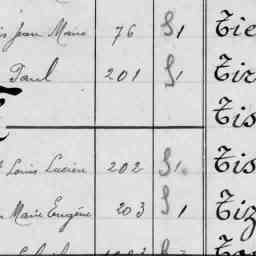 is Jean Marie 76 S1 Tie
Paul 201 S1 Tir
Tis
Louis Lucien 202 S1 Tis
Marie Eugène 203 S1 Tiz